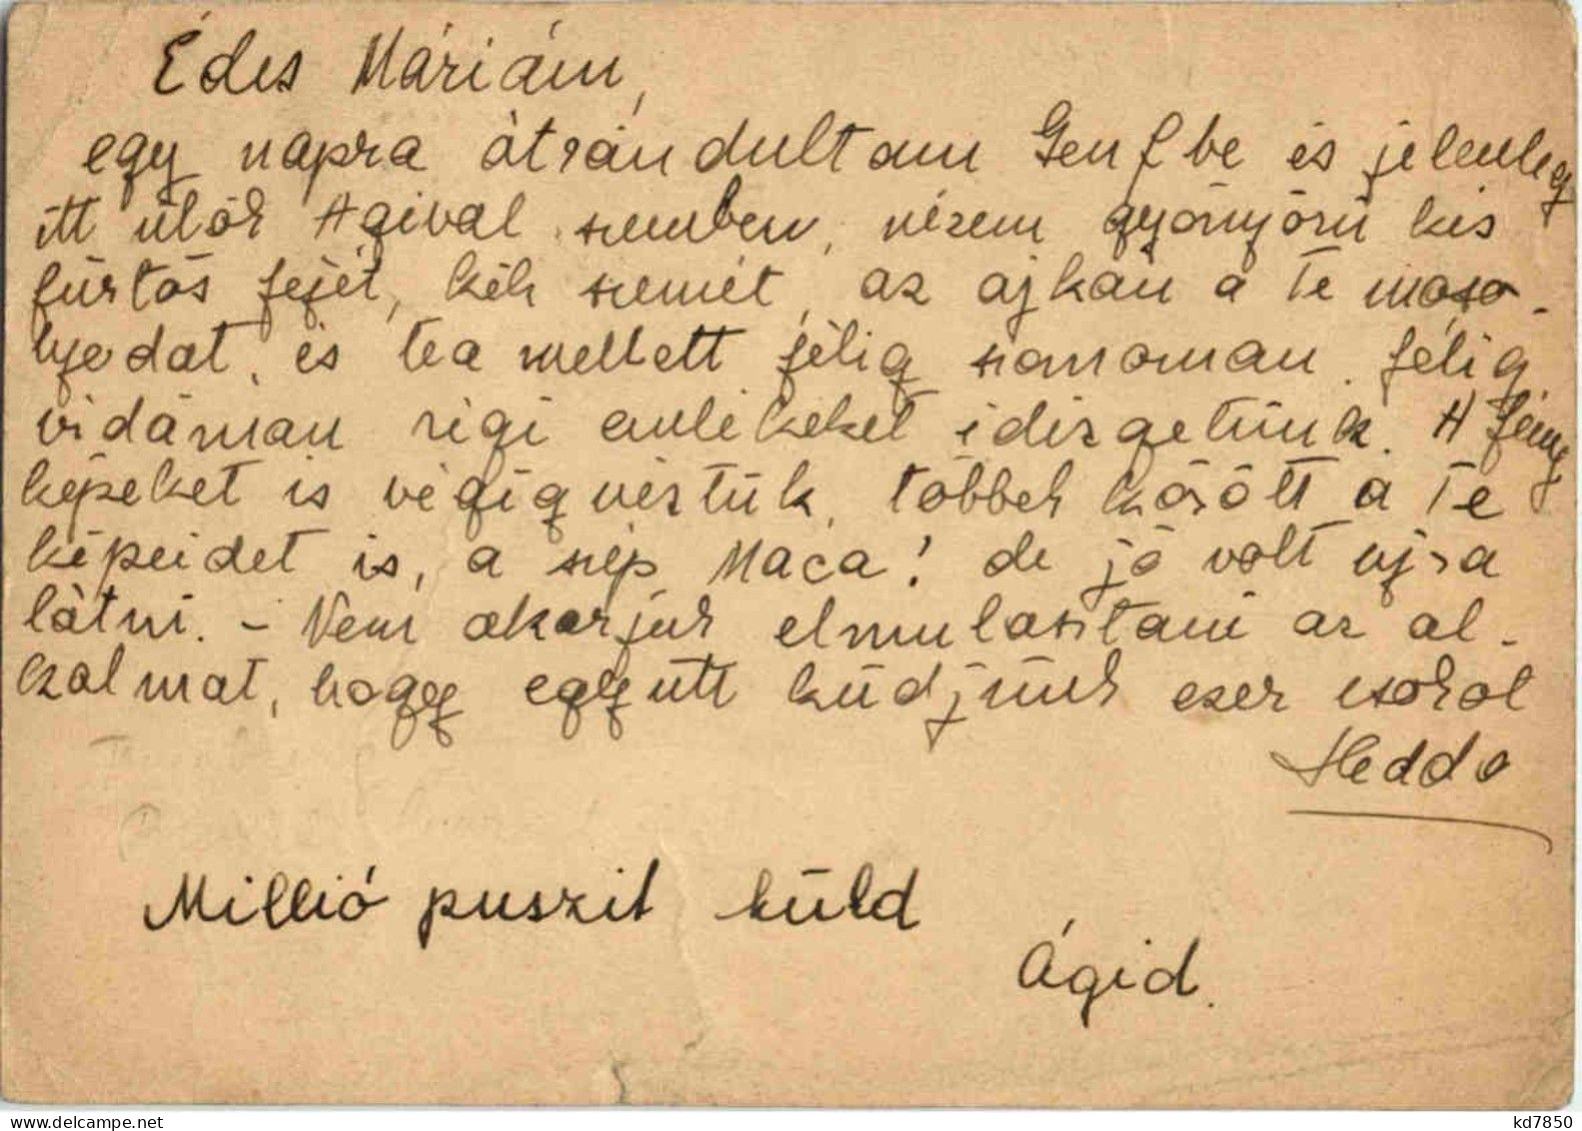 Édes Máriám,
egy napra átrándultam Genfbe és jelenleg
itt ülök Ágival szemben, nézem gyönyörű kis
fürtös fejét, kék szemét, az ajkán a Te moso-
lyodat, és tea mellett félig szomorúan, félig
vidáman régi emlékeket idézgetünk. A fény-
képeket is végignéztük, többek között a Te
képeidet is, a szép Maca! de jó volt ujra
látni. – Nem akarjuk elmulasztani az al-
kalmat, hogy együtt küldjünk ezer csókot
Hedda
Millió puszit küld
Ágid.
delcampe.net
kd7850